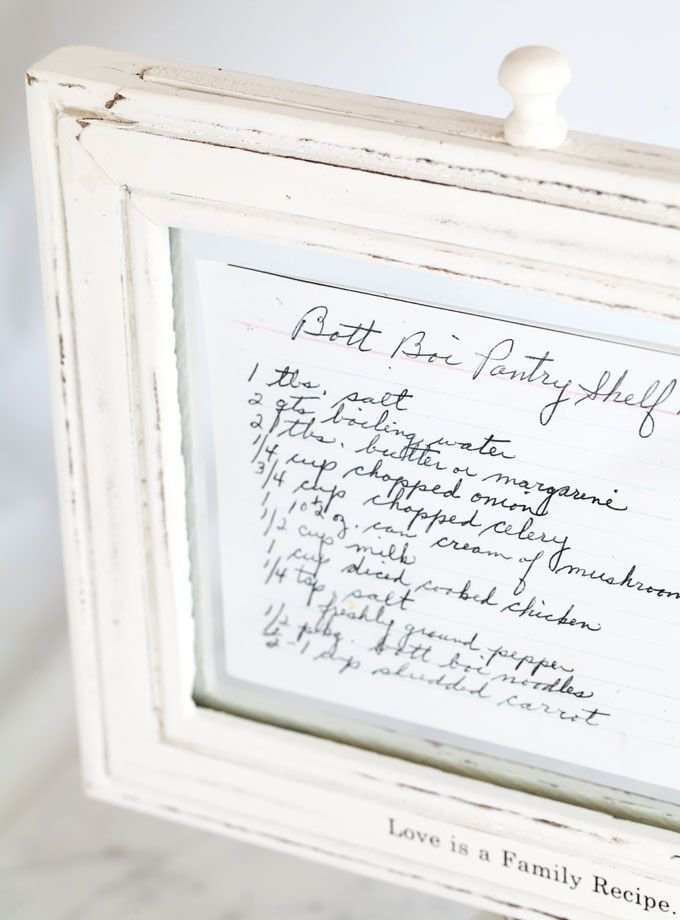 Bott Boi Pantry Shelf
1 tbs. salt
2 qts boiling water
2 tbs. butter or margarine
1/4 cup chopped onion
3/4 cup chopped celery
1 10½ oz. can cream of mushroom
1/2 cup milk
1 cup diced cooked chicken
1/4 tsp. salt
freshly ground pepper
1/2 pkg. bott boi noodles
1/2-1 cup shredded carrot
Love is a Family Recipe.